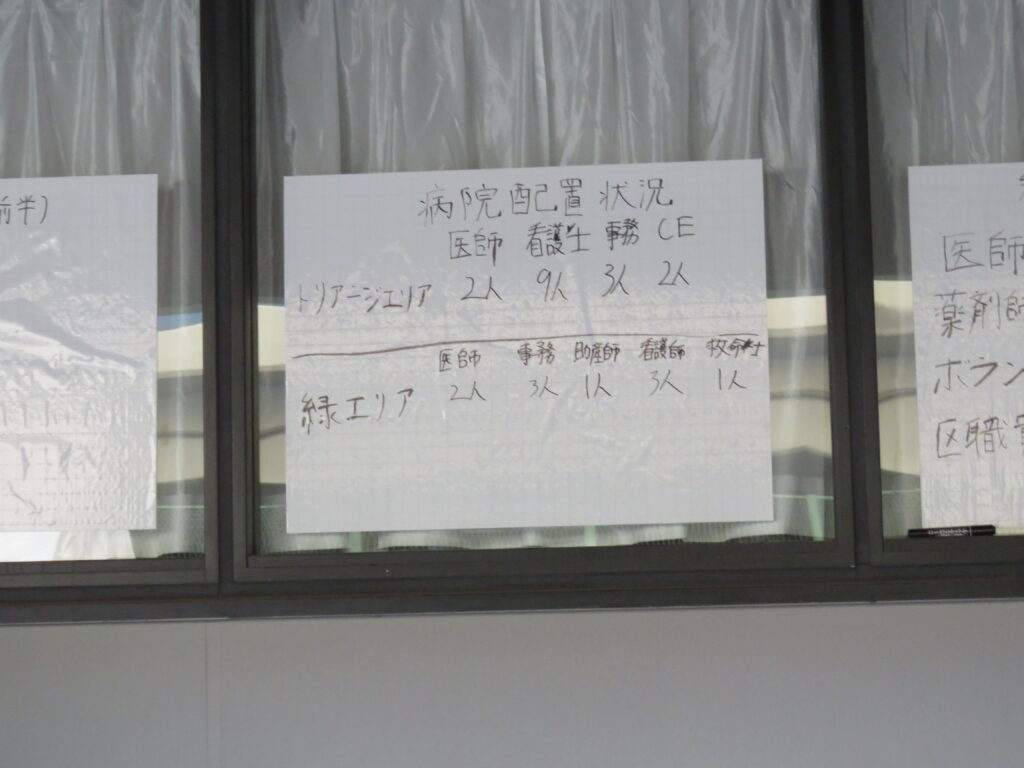 前半)
病院配置状況
医師 看護士 事務 CE
トリアージエリア 2人 9人 3人 2人
医師 事務 助産師 看護師 救命士
緑エリア 2人 3人 1人 3人 1人
医師
薬剤師
ボラン
区職員